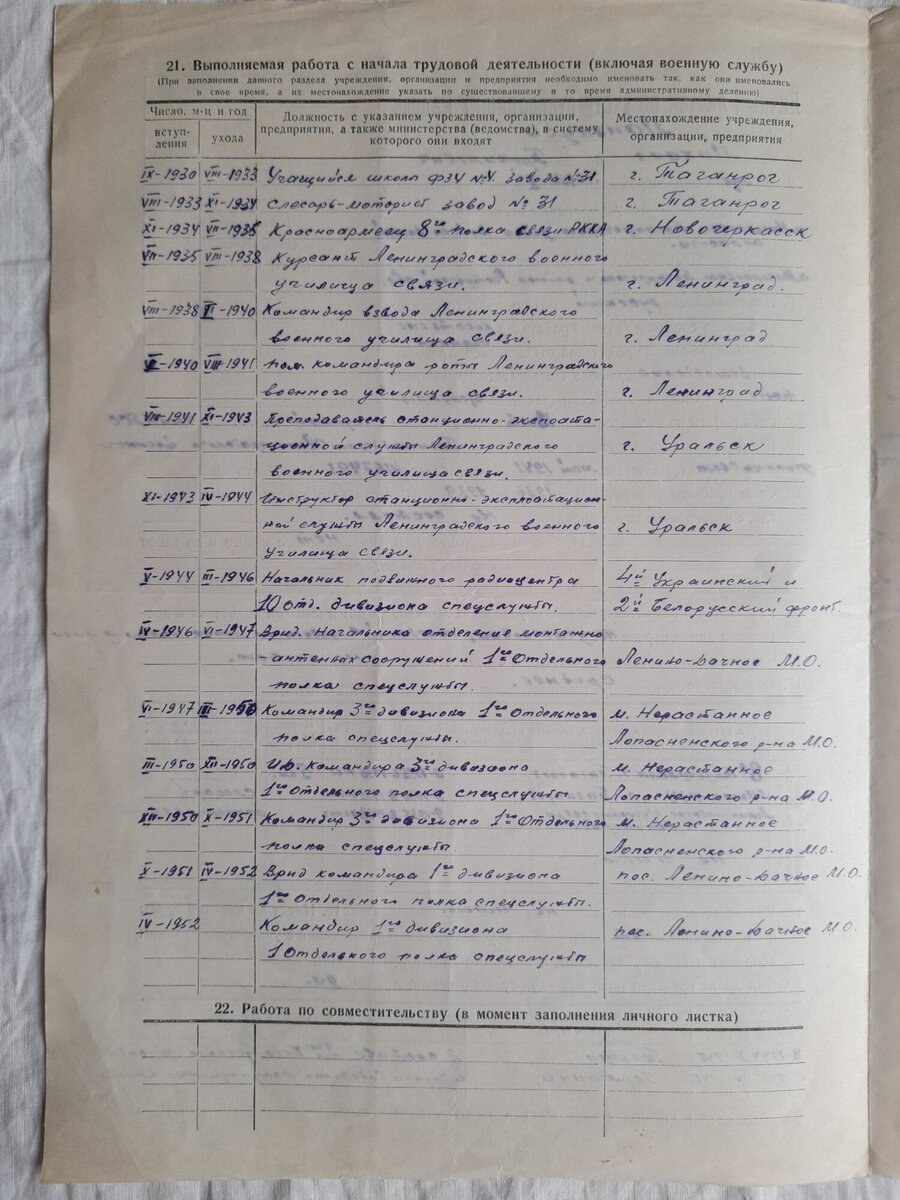 21. Выполняемая работа с начала трудовой деятельности (включая военную службу)
(При заполнении данного раздела учреждения, организации и предприятия необходимо именовать так, как они именовались
в свое время, а их местонахождение указать по существовавшему в то время административному делению)
Число, м-ц и год
вступ-
ления
ухода
Должность с указанием учреждения, организации,
предприятия, а также министерства (ведомства), в систему
которого они входят
Местонахождение учреждения,
организации, предприятия
IX-1930 VIII-1933 Учащийся школы ФЗУ завода №31. г. Таганрог
VIII-1933 XI-1934 Слесарь-моторист завод № 31 г. Таганрог
XI-1934 VII-1935 Красноармеец 8го полка связи РККА г. Новочеркасск
VII-1935 VIII-1938 Курсант Ленинградского военного
училища связи. г. Ленинград.
VIII-1938 1940 Командир взвода Ленинградского
военного училища связи. г. Ленинград
1940 VIII-1941 пом. командира роты Ленинградского
военного училища связи. г. Ленинград
VIII-1941 XI-1943 Преподаватель станционно-эксплоата-
ционной службы Ленинградского г. Уральск
военного училища связи.
XI-1943 IV-1944 Инструктор станционно-эксплоатацион-
ной службы Ленинградского военного г. Уральск
училища связи.
V-1944 III-1946 Начальник подвижного радиоцентра 4й Украинский и
10 отд. дивизиона спецслужбы. 2й Белорусский фронт.
IV-1946 VI-1947 Врид. Начальника отделение монтажно
-антенных сооружений 1го Отдельного Ленино-Дачное М.О.
полка спецслужбы.
VI-1947 III-1950 Командир 3го дивизиона 1го Отдельного м. Нерастанное
полка спецслужбы. Лопасненского р-на М.О.
III-1950 XII-1950 И.о. командира 3го дивизиона м. Нерастанное
1го Отдельного полка спецслужбы Лопасненского р-на М.О.
XII-1950 X-1951 Командир 3го дивизиона 1го Отдельного м. Нерастанное
полка спецслужбы Лопасненского р-на М.О.
X-1951 IV-1952 Врид командира 1го дивизиона пос. Ленино-Дачное М.О.
1го Отдельного полка спецслужбы.
IV-1952 Командир 1го дивизиона пос. Ленино-Дачное М.О.
1 Отдельного полка спецслужбы
22. Работа по совместительству (в момент заполнения личного листка)